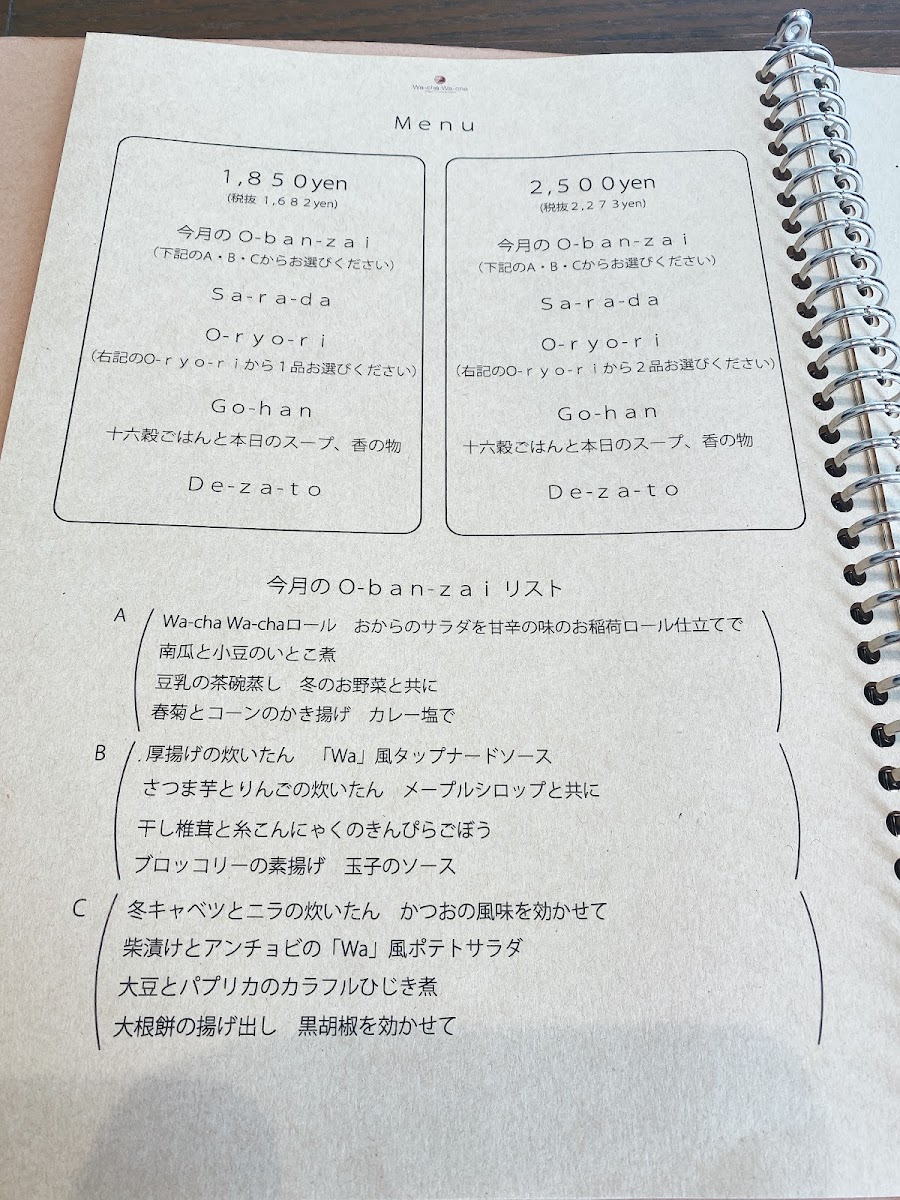 Wa-cha Wa-cha
Menu
1,850yen
(税抜 1,682yen)
今月の O-ban-zai
(下記のA・B・Cからお選びください)
Sa-ra-da
O-ryo-ri
(右記のO-ryo-riから1品お選びください)
Go-han
十六穀ごはんと本日のスープ、香の物
De-za-to
2,500yen
(税抜2,273yen)
今月の O-ban-zai
(下記のA・B・Cからお選びください)
Sa-ra-da
O-ryo-ri
(右記のO-ryo-riから2品お選びください)
Go-han
十六穀ごはんと本日のスープ、香の物
De-za-to
今月の O-ban-zai リスト
A Wa-cha Wa-chaロール おからのサラダを甘辛の味のお稲荷ロール仕立てで
南瓜と小豆のいとこ煮
豆乳の茶碗蒸し 冬のお野菜と共に
春菊とコーンのかき揚げ カレー塩で
B .厚揚げの炊いたん 「Wa」風タップナードソース
さつま芋とりんごの炊いたん メープルシロップと共に
干し椎茸と糸こんにゃくのきんぴらごぼう
ブロッコリーの素揚げ 玉子のソース
C 冬キャベツとニラの炊いたん かつおの風味を効かせて
柴漬けとアンチョビの「Wa」風ポテトサラダ
大豆とパプリカのカラフルひじき煮
大根餅の揚げ出し 黒胡椒を効かせて